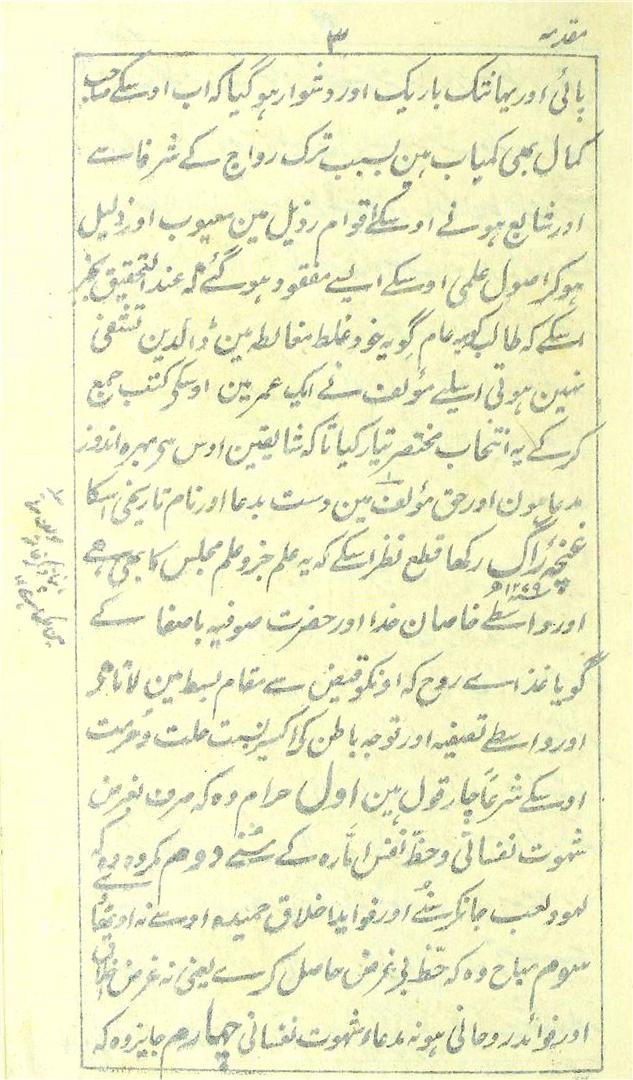 مقدمہ ۳
پائی اور یہانتک باریک اور دشوار ہو گیا کہ اب اوسکے صاحب
کمال بھی کمیاب ہین بسبب ترک رواج کے شرفا سے
اور شایع ہونے اوسکے اقوام رذیل مین معیوب اور ذلیل
ہو کر اصول علمی اوسکے ایسے مفقود ہو گئے کہ عند التحقیق بجز
اسکے کہ طالب کو یہ عام گویہ خود غلط مغالطہ مین ڈالدین تشفی
نہین ہوتی اسلیے مؤلف نے ایک عمر مین اوسکی کتب جمع
کر کے یہ انتخاب مختصر تیار کیا تاکہ شایقین اوس سے بہرہ اندوز
مدعا ہون اور حق مؤلف مین دست بدعا اور نام تاریخی اسکا
غنچۂ راگ رکھا قطع نظر اسکے کہ یہ علم جزو علم مجلس کا بھی ہے
۱۲۷۹
اور واسطے خاصان خدا اور حضرت صوفیہ باصفا کے
گویا غذاے روح کہ اونکو قبض سے مقام بسط مین لاتا ہے
اور واسطے تصفیہ اور توجہ باطن کے اکسیر نسبت حلت و حرمت
اوسکے شرعاً چار قول ہین اول حرام وہ کہ صرف بغرض
شہوت نفسانی و حظّ نفس امّارہ کے سُنے دوم مکروہ وہ کہ
لہو و لعب جانکر سُنے اور فواید اخلاق حمیدہ اوسے نہ اوٹھائے
سوم مباح وہ کہ حظ بے غرض حاصل کرے یعنی نہ غرض اخلاقی
اور فوائد روحانی ہو نہ مدعاء شہوت نفسانی چہارم جایز وہ کہ